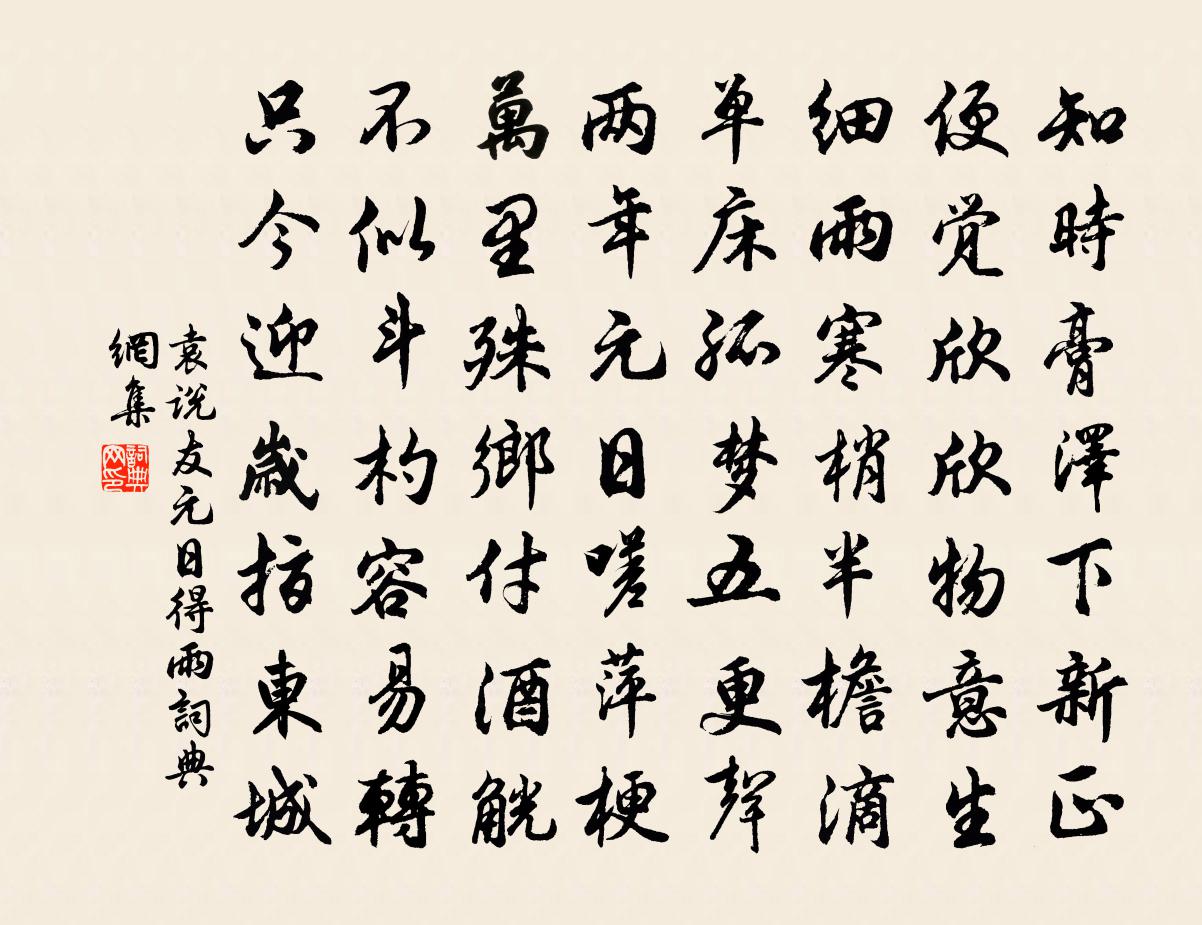 知時膏澤下新正
便覚欣欣物意生
细雨寒梢半檐滴
单床孤梦五更聲
两年元日嗟萍梗
萬里殊鄉付酒觥
不似斗杓容易轉
只今迎歲指東城
袁说友元日得雨詞典
網集
詞典
网印